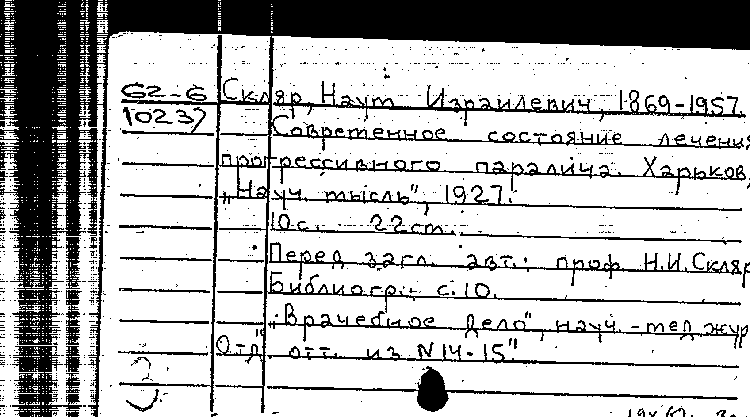 62-6 Скляр, Наум Израилевич, 1869-1957.
10237 Современное состояние лечения
прогрессивного паралича. Харьков,
"Науч. мысль", 1927.
10с. 22см.
Перед загл. авт.: проф Н.И.Скляр
Библиогр.: с.10.
"Врачебное дело", науч.-мед жур
Отд. отт. из N14-15"